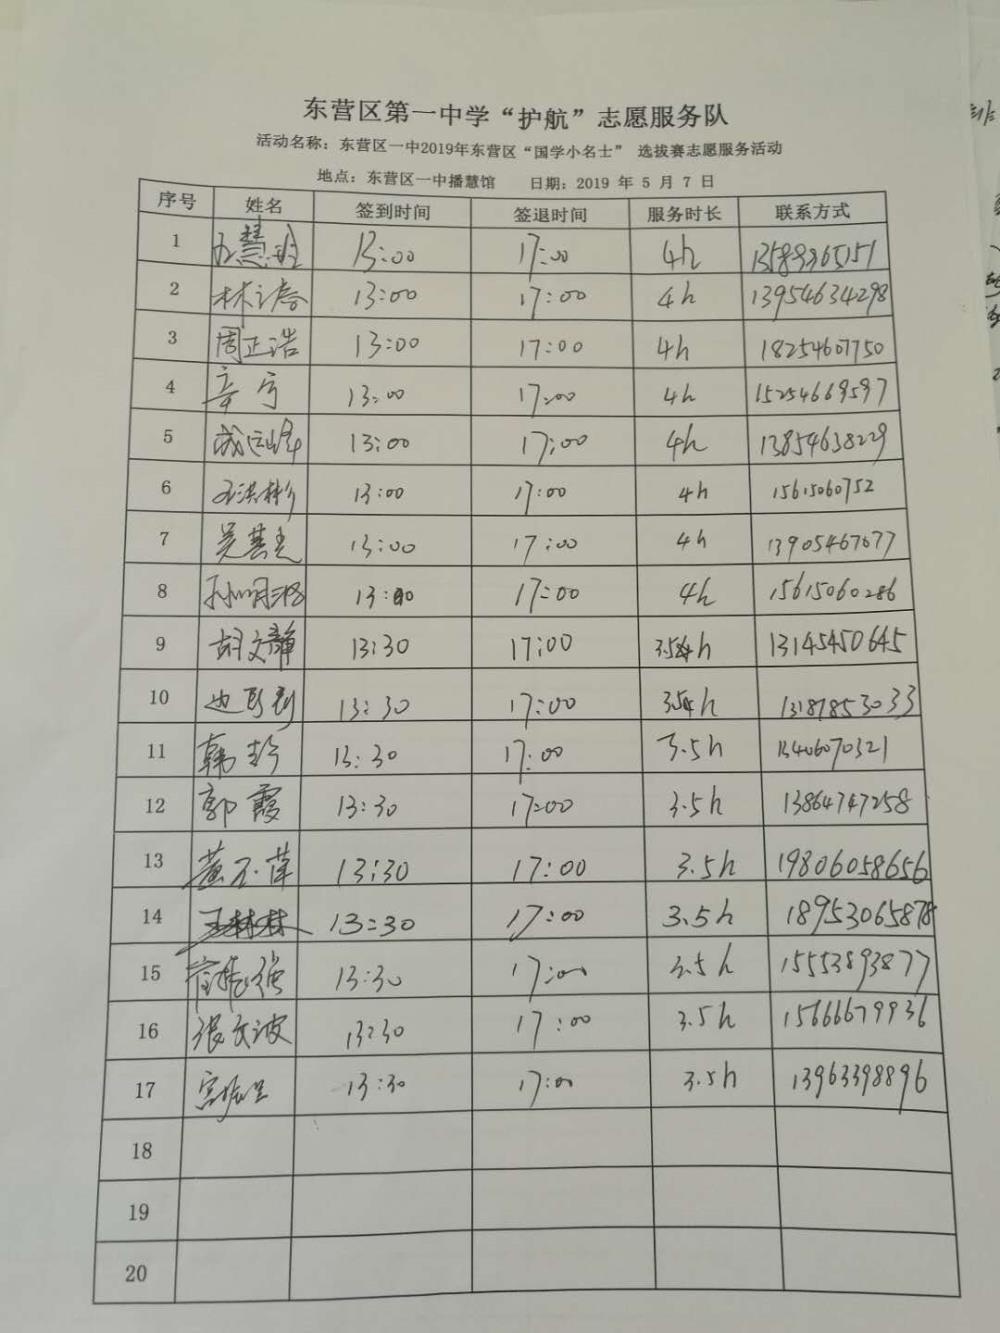 东营区第一中学“护航”志愿服务队
活动名称：东营区一中2019年东营区“国学小名士” 选拔赛志愿服务活动
地点：东营区一中播慧馆 日期：2019 年 5 月 7 日
序号 姓名 签到时间 签退时间 服务时长 联系方式
1 13:00 17:00 4h
2 13:00 17:00 4h 13954634298
3 周正浩 13:00 17:00 4h 18254607750
4 辛宁 13:00 17:00 4h 15254669597
5 13:00 17:00 4h 13854638229
6 13:00 17:00 4h 15615060752
7 13:00 17:00 4h 13905467677
8 13:00 17:00 4h 15615060286
9 胡文静 13:30 17:00 3.5h 13145450645
10 13:30 17:00 3.5h 13187853033
11 韩 13:30 17:00 3.5h 13406070321
12 郭霞 13:30 17:00 3.5h 13864747258
13 13:30 17:00 3.5h 19806058656
14 王林林 13:30 17:00 3.5h 18953065878
15 13:30 17:00 3.5h 15553893877
16 张文波 13:30 17:00 3.5h 15666679936
17 13:30 17:00 3.5h 13963398896
18
19
20